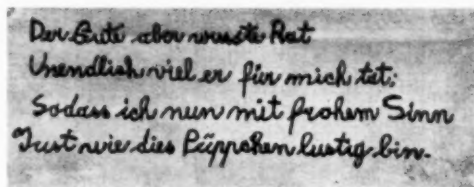 Der Gute aber wusste Rat
Unendlich viel er für mich tat;
Sodass ich nun mit frohem Sinn
Just wie dies Püppchen lustig bin.